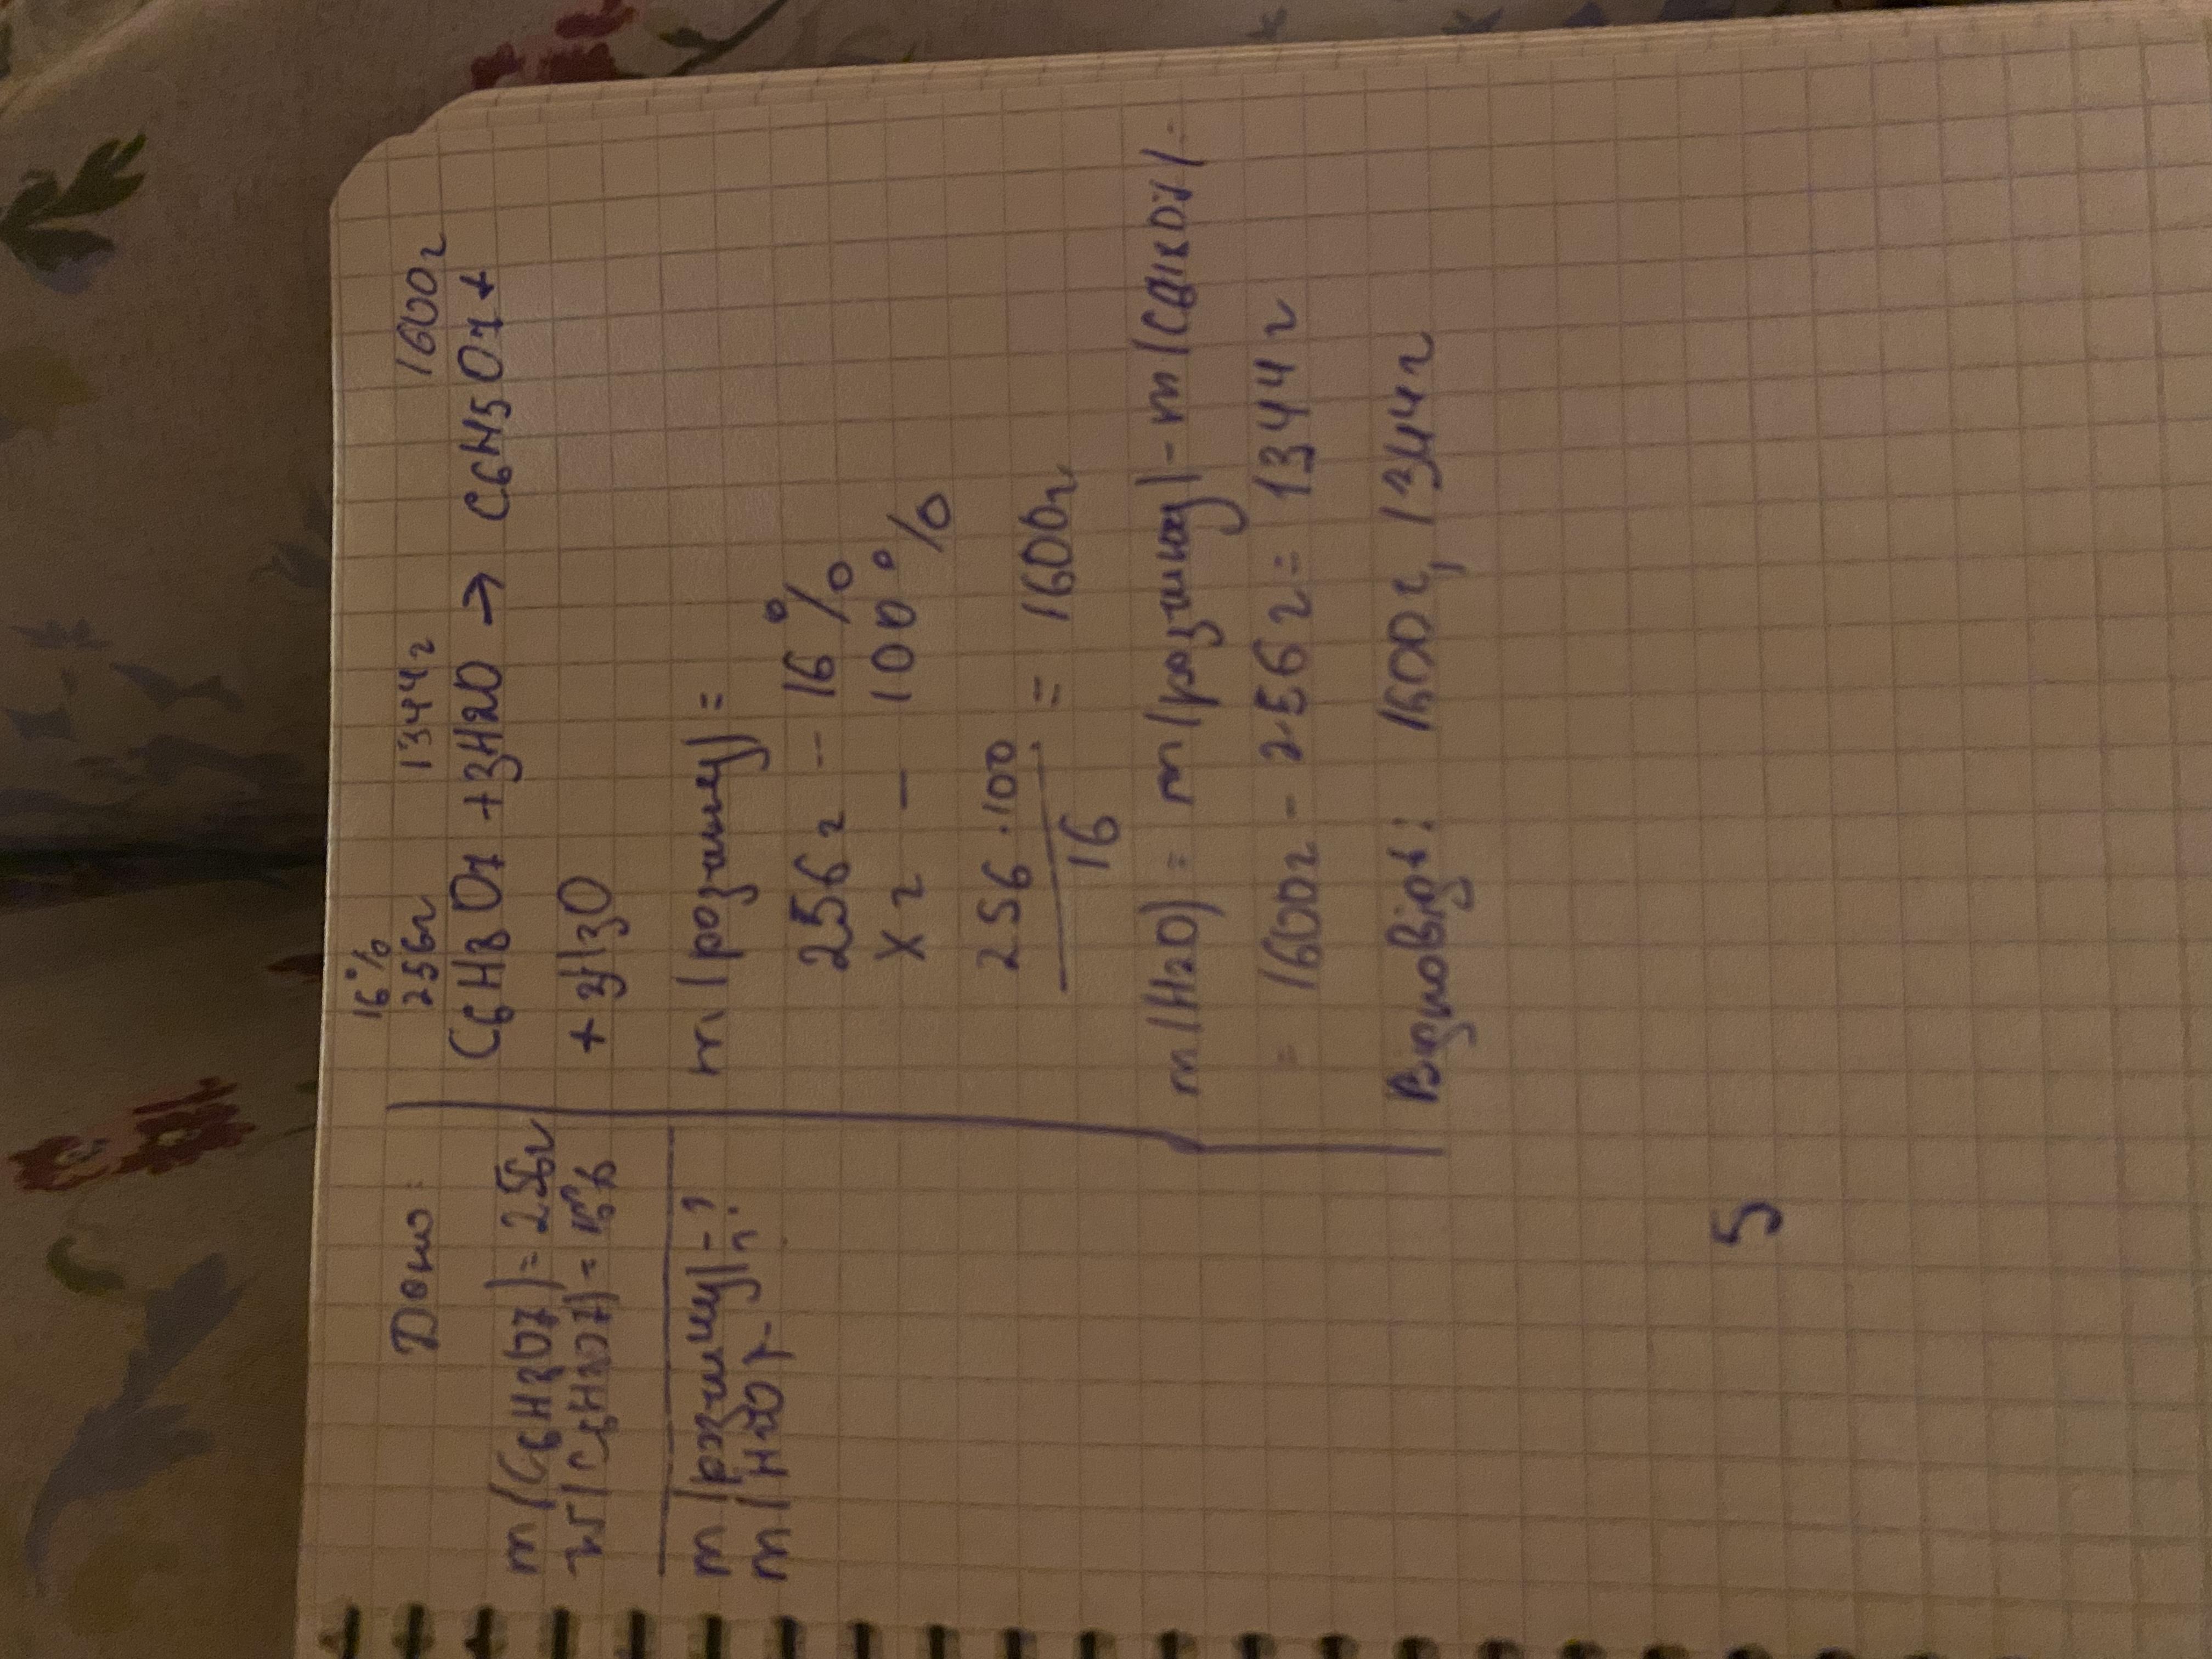 Дано:
m(C6H8O7)=256г
w(C6H8O7)=16%
m(розчину)-?
m(H2O)-?
16%
256г 1344г 1600г
C6H8O7 +3H2O → C6H5O7 +
+ 3H3O
m(розчину)=
256г -- 16%
x г — 100%
256.100
16
= 1600г
m(H2O)= m(розчину)-m(
= 1600г - 256г= 1344г
Відповідь: 1600г, 1344г
5